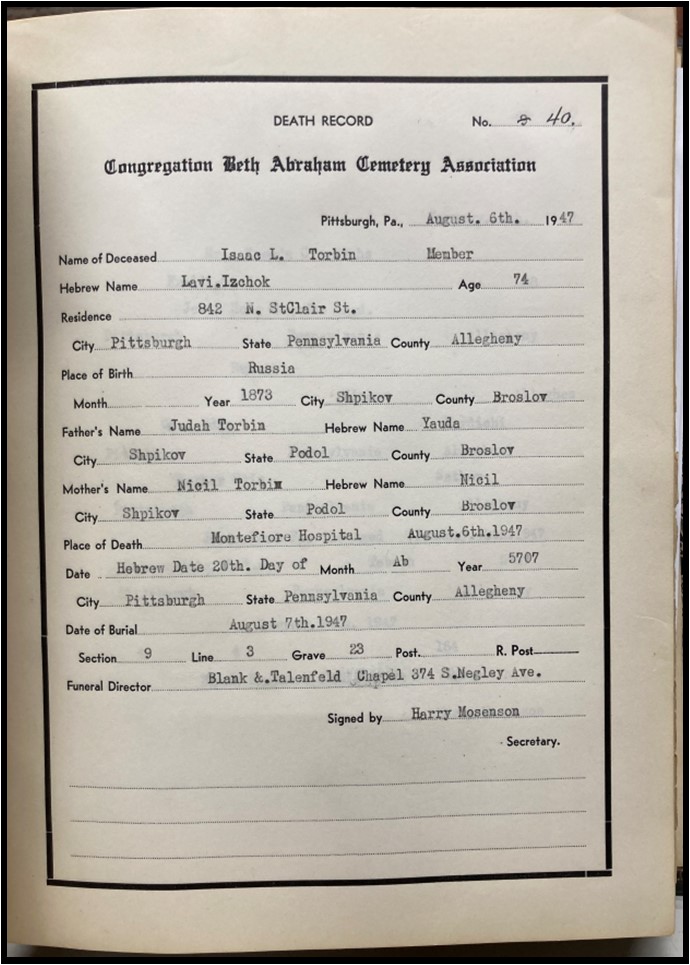 DEATH RECORD No. 40.
Congregation Beth Abraham Cemetery Association
Pittsburgh, Pa., August. 6th. 1947
Name of Deceased Isaac L. Torbin Member
Hebrew Name Lavi.Izchok Age 74
Residence 842 N. StClair St.
City Pittsburgh State Pennsylvania County Allegheny
Place of Birth Russia
Month Year 1873 City Shpikov County Broslov
Father's Name Judah Torbin Hebrew Name Yauda
City Shpikov State Podol County Broslov
Mother's Name Nicil Torbin Hebrew Name Nicil
City Shpikov State Podol County Broslov
Place of Death Montefiore Hospital August.6th.1947
Date Hebrew Date 20th. Day of Month Ab Year 5707
City Pittsburgh State Pennsylvania County Allegheny
Date of Burial August 7th.1947
Section 9 Line 3 Grave 23 Post. R. Post
Funeral Director Blank &.Talenfeld Chapel 374 S.Negley Ave.
Signed by Harry Mosenson
Secretary.